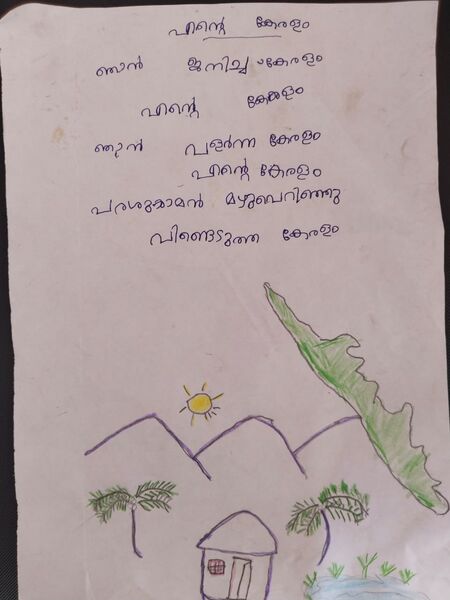 എന്റെ കേരളം
ഞാൻ ജനിച്ച കേരളം
എന്റെ കേരളം
ഞാൻ വളർന്ന കേരളം
എന്റെ കേരളം
പരശുരാമൻ മഴുവെറിഞ്ഞു
വീണ്ടെടുത്ത കേരളം